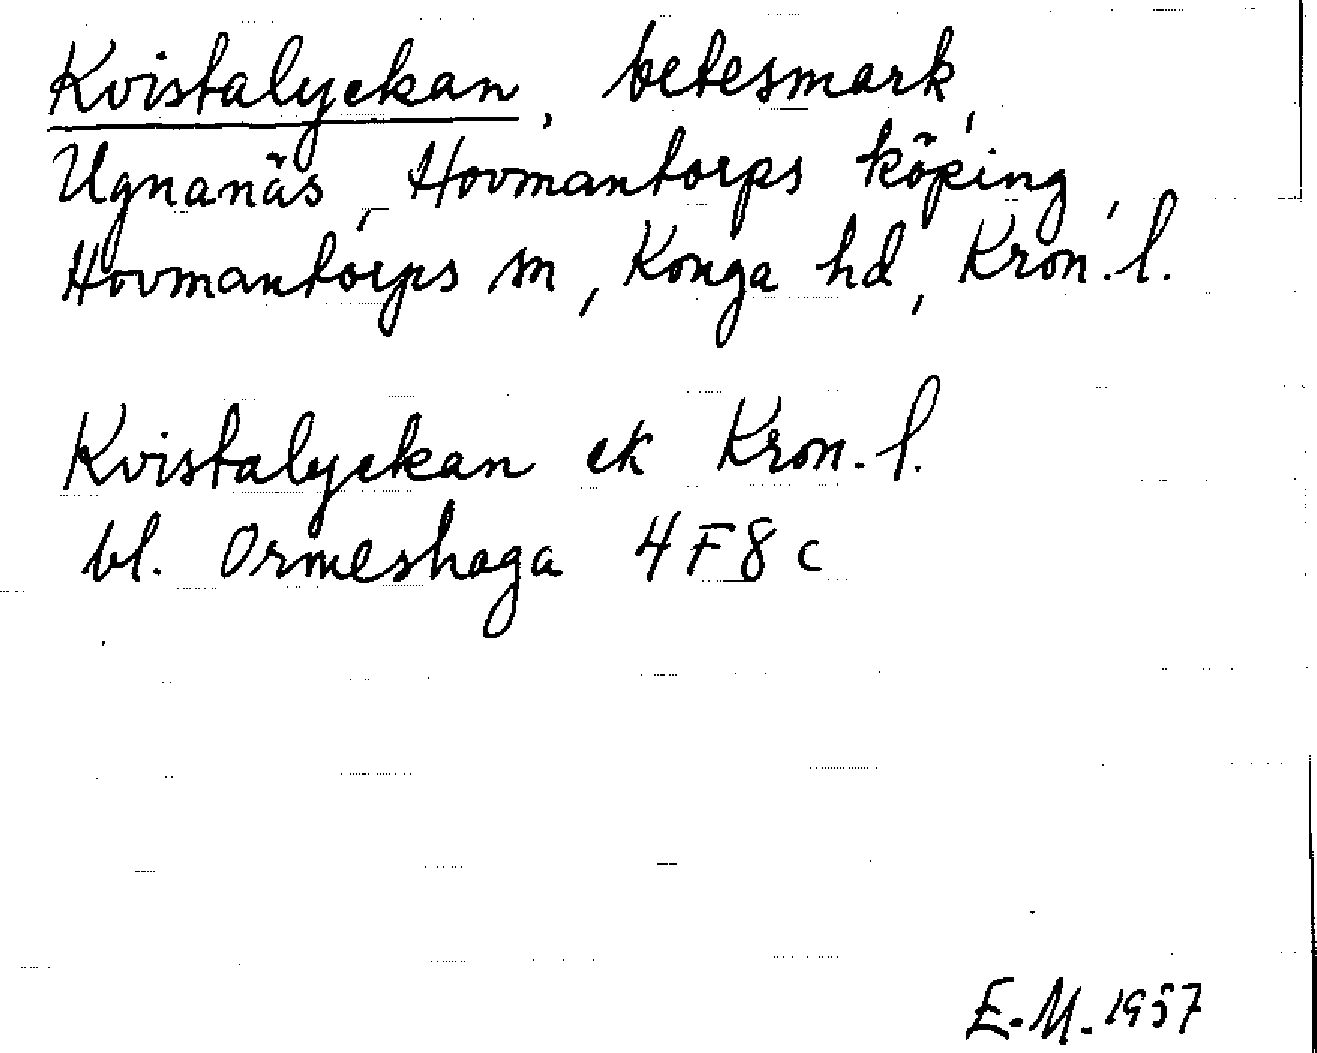 Kvistalyckan, betesmark,
Ugnanäs, Hovmantorps köping,
Hovmantorps sn, Konga hd, Kron. l.
Kvistalyckan ek Kron. l.
bl. Ormeshaga 4F8c
E.M. 1957